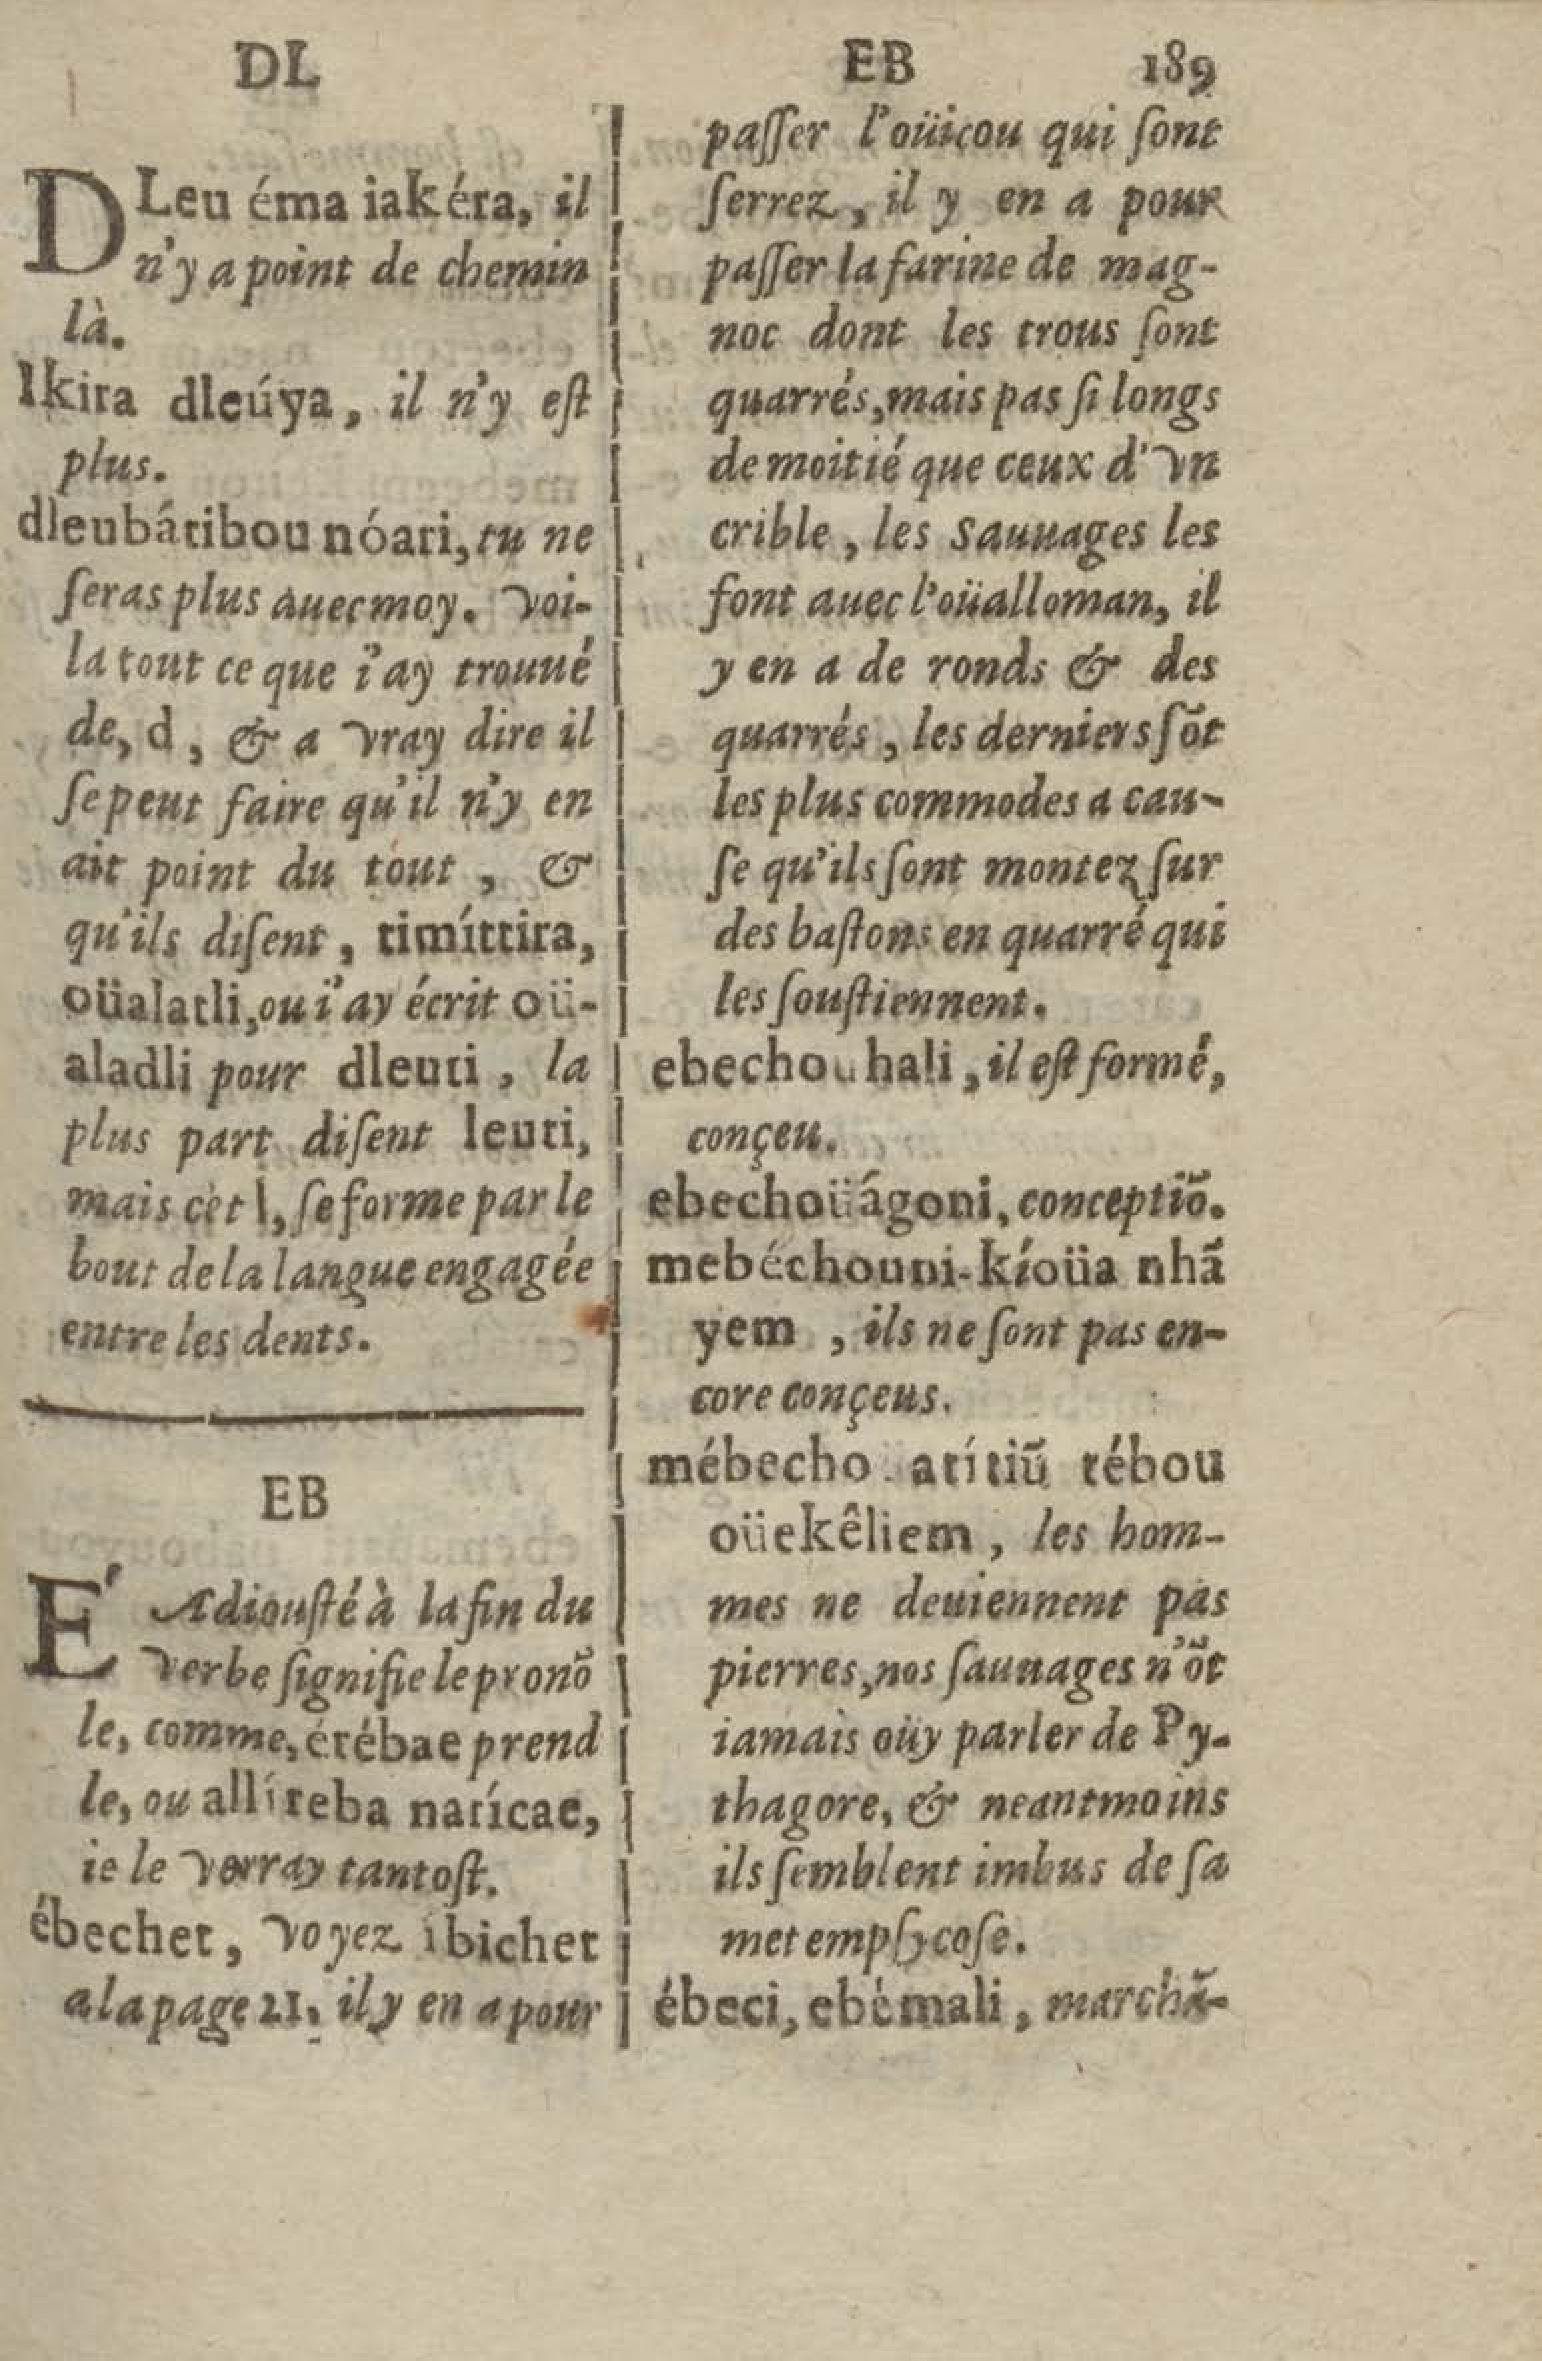 DL
DLeu éma iakéra, il
n'y a point de chemin
là.
Ikira dleúya, il n'y eſt
plus.
dleubátibou nóari, tu ne
ſeras plus auec moy. voi-
la tout ce que i'ay trouué
de, d, & a vray dire il
ſe peut faire qu'il n'y en
ait point du tout, &
qu'ils diſent, timíttira,
oüalatli, ou i'ay écrit oü-
aladli pour dleuti, la
plus part diſent leuti,
mais cèt l, ſe forme par le
bout de la langue engagée
entre les dents.
EB
É Adiouſté à la fin du
verbe ſignifie le pronõ
le, comme, érébae prend
le, ou allíreba narícae,
ie le verray tantoſt.
ébechet, voyez ibichet
a la page 21, il y en a pour
EB 189
paſſer l'oüicou qui ſont
ſerrez, il y en a pour
paſſer la farine de mag-
noc dont les trous ſont
quarrés, mais pas ſi longs
de moitié que ceux d'vn
crible, les Sauuages les
font auec l'oüalloman, il
y en a de ronds & des
quarrés, les derniers ſõt
les plus commodes a cau-
ſe qu'ils ſont montez ſur
des baſtons en quarré qui
les ſouſtiennent.
ebechouhali, il eſt formé,
conçeu.
ebechoüágoni, conceptiõ.
mebéchouni-kíoüa nhã
yem, ils ne ſont pas en-
core conçeus.
mébecho atítiũ tébou
oüekêliem, les hom-
mes ne deuiennent pas
pierres, nos ſauuages n'õt
iamais oüy parler de Py-
thagore, & neantmoins
ils ſemblent imbus de ſa
metempſycoſe.
ébeci, ebémali, marchã-